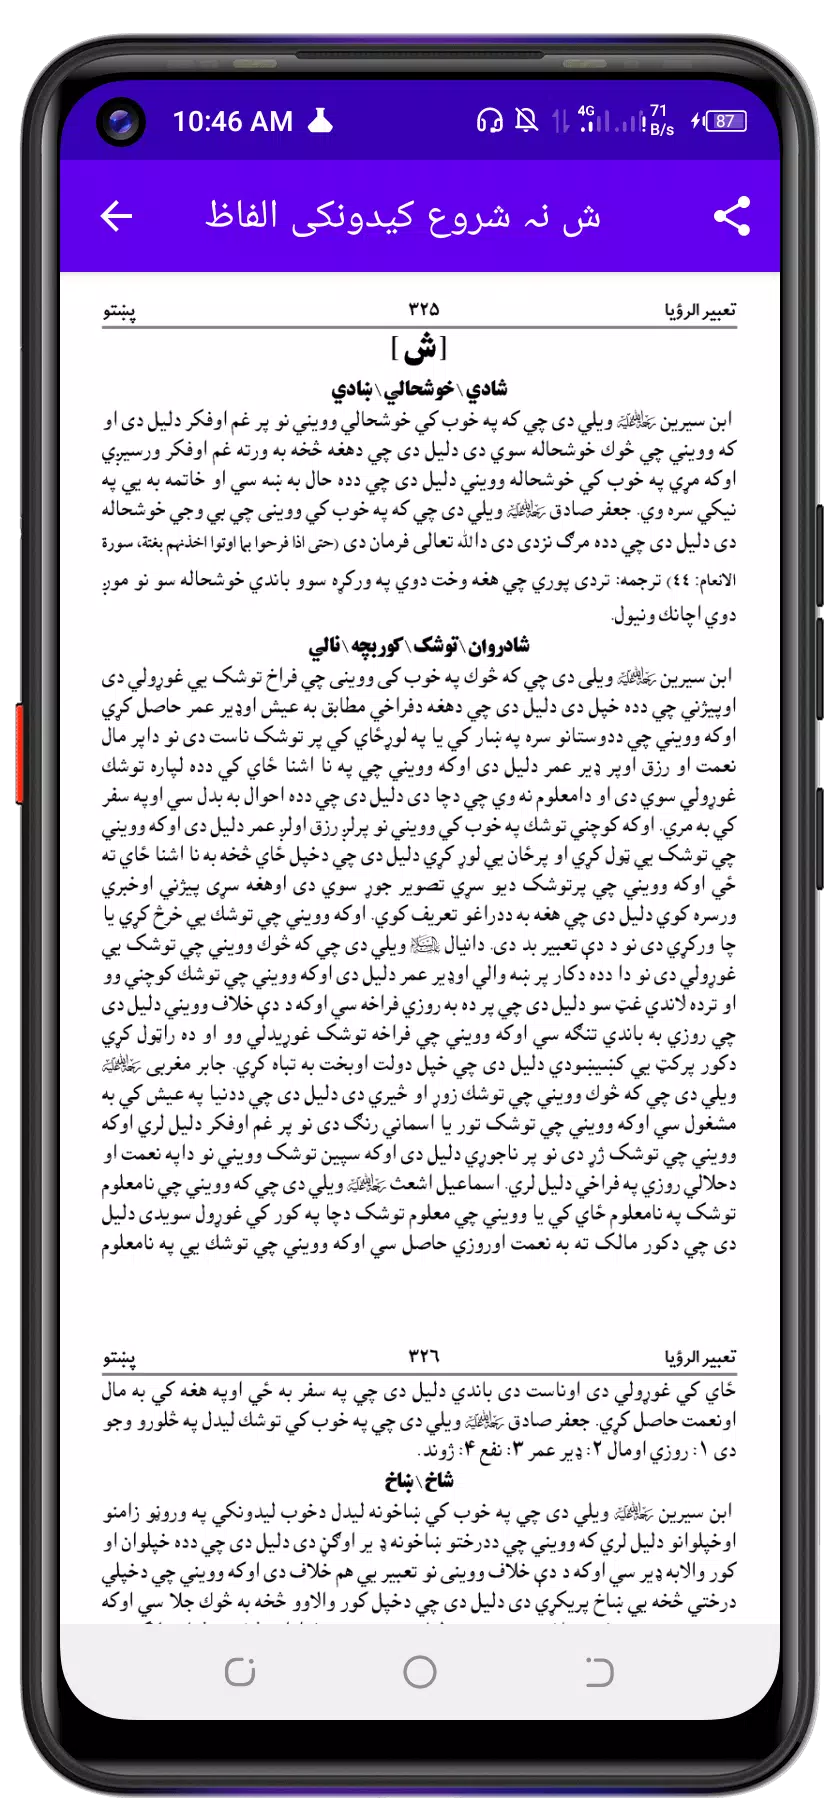 10:46 AM 4G 71 B/s 87
ش نہ شروع کیدونکی الفاظ
تعبیر الرؤیا ۳۲۵ پښتو
[ش]
شادي\خوشحالي\ښادي
ابن سیرین رحمة الله علیه ویلي دی چي که په خوب کي خوشحالي وویني نو پر غم اوفکر دلیل دی او
که وویني چي څوك خوشحاله سوي دی دلیل دی چي دهغه څخه به ورته غم اوفکر ورسیږي
اوکه مړي په خوب کي خوشحاله وویني دلیل دی چي دده حال به ښه سي او خاتمه به یي په
نیکي سره وي. جعفر صادق رحمة الله علیه ویلي دی چي که په خوب کي وویني چي بي وجي خوشحاله
دی دلیل دی چي دده مرګ نزدی دی دالله تعالی فرمان دی (حتی اذا فرحوا بما اوتوا اخذنهم بغتة، سورة
الانعام: ٤٤) ترجمه: تردی پوري چي هغه وخت دوي په ورکړه سوو باندي خوشحاله سو نو موږ
دوي اچانك ونیول.
شادروان\توشک\کوربچه\نالي
ابن سیرین رحمة الله علیه ویلی دی چي که څوك په خوب کی وویني چي فراخ توشک یي غوړولي دی
اوپیژني چي دده خپل دی دلیل دی چي دهغه دفراخي مطابق به عیش اوډیر عمر حاصل کړي
اوکه وویني چي ددوستانو سره په ښار کي یا په لوړځاي کي پر توشک ناست دی نو داپر مال
نعمت او رزق اوپر ډیر عمر دلیل دی اوکه وویني چي په نا اشنا ځاي کي دده لپاره توشك
غوړولي سوي دی او دامعلوم نه وي چي دچا دی دلیل دی چي دده احوال به بدل سي اوپه سفر
کي به مري. اوکه کوچني توشك په خوب کي وویني نو پرلږ رزق اولږ عمر دلیل دی اوکه وویني
چي توشک یي ټول کړي او پرځان یي لوړ کړي دلیل دی چي دخپل ځاي څخه به نا اشنا ځاي ته
ځي اوکه وویني چي پرتوشک دیو سړي تصویر جوړ سوي دی اوهغه سړی پیژني اوخبري
ورسره کوي دلیل دی چي هغه به ددراغو تعریف کوي. اوکه وویني چي توشك یي خرڅ کړي یا
چا ورکړي دی نو د دې تعبیر بد دی. دانیال علیه السلام ویلي دی چي که څوك وویني چي توشک یي
غوړولي دی نو دا دده دکار پر ښه والي اوډیر عمر دلیل دی اوکه وویني چي توشك کوچني وو
او ترده لاندي غټ سو دلیل دی چي پر ده به روزي فراخه سي اوکه د دې خلاف وویني دلیل دی
چي روزي به باندي تنګه سي اوکه وویني چي فراخه توشک غوړیدلي وو او ده راټول کړي
دکور پرکټ یي کښیښودي دلیل دی چي خپل دولت اوبخت به تباه کړي. جابر مغربی رحمة الله علیه
ویلي دی چي که څوك وویني چي توشك زوړ او څیري دی دلیل دی چي ددنیا په عیش کي به
مشغول سي اوکه وویني چي توشک تور یا اسماني رنګ دی نو پر غم اوفکر دلیل لري اوکه
وویني چي توشک ژړ دی نو پر ناجوړي دلیل دی اوکه سپین توشک وویني نو داپه نعمت او
دحلالي روزي په فراخي دلیل لري. اسماعیل اشعث رحمة الله علیه ویلي دی چي که وویني چي نامعلوم
توشک په نامعلوم ځاي کي یا وویني چي معلوم توشک دچا په کور کي غوړول سویدی دلیل
دی چي دکور مالک ته به نعمت اوروزي حاصل سي اوکه وویني چي توشك یي په نامعلوم
تعبیر الرؤیا ۳۲۶ پښتو
ځاي کي غوړولي دی اوناست دی باندي دلیل دی چي په سفر به ځي اوپه هغه کي به مال
اونعمت حاصل کړي. جعفر صادق رحمة الله علیه ویلي دی چي په خوب کي توشك لیدل په څلورو وجو
دی ۱: روزي اومال ۲: ډیر عمر ۳: نفع ۴: ژوند.
شاخ\ښاخ
ابن سیرین رحمة الله علیه ویلي دی چي په خوب کي ښاخونه لیدل دخوب لیدونکي په وروڼو زامنو
اوخپلوانو دلیل لري که وویني چي ددرختو ښاخونه ډ یر اوګڼ دی دلیل دی چي دده خپلوان او
کور والابه ډیر سي اوکه د دې خلاف وویني نو تعبیر یي هم خلاف دی اوکه وویني چي دخپلي
درختي څخه یي ښاخ پریکړي دی دلیل دی چي دخپل کور والاوو څخه به څوك جلا سي اوکه